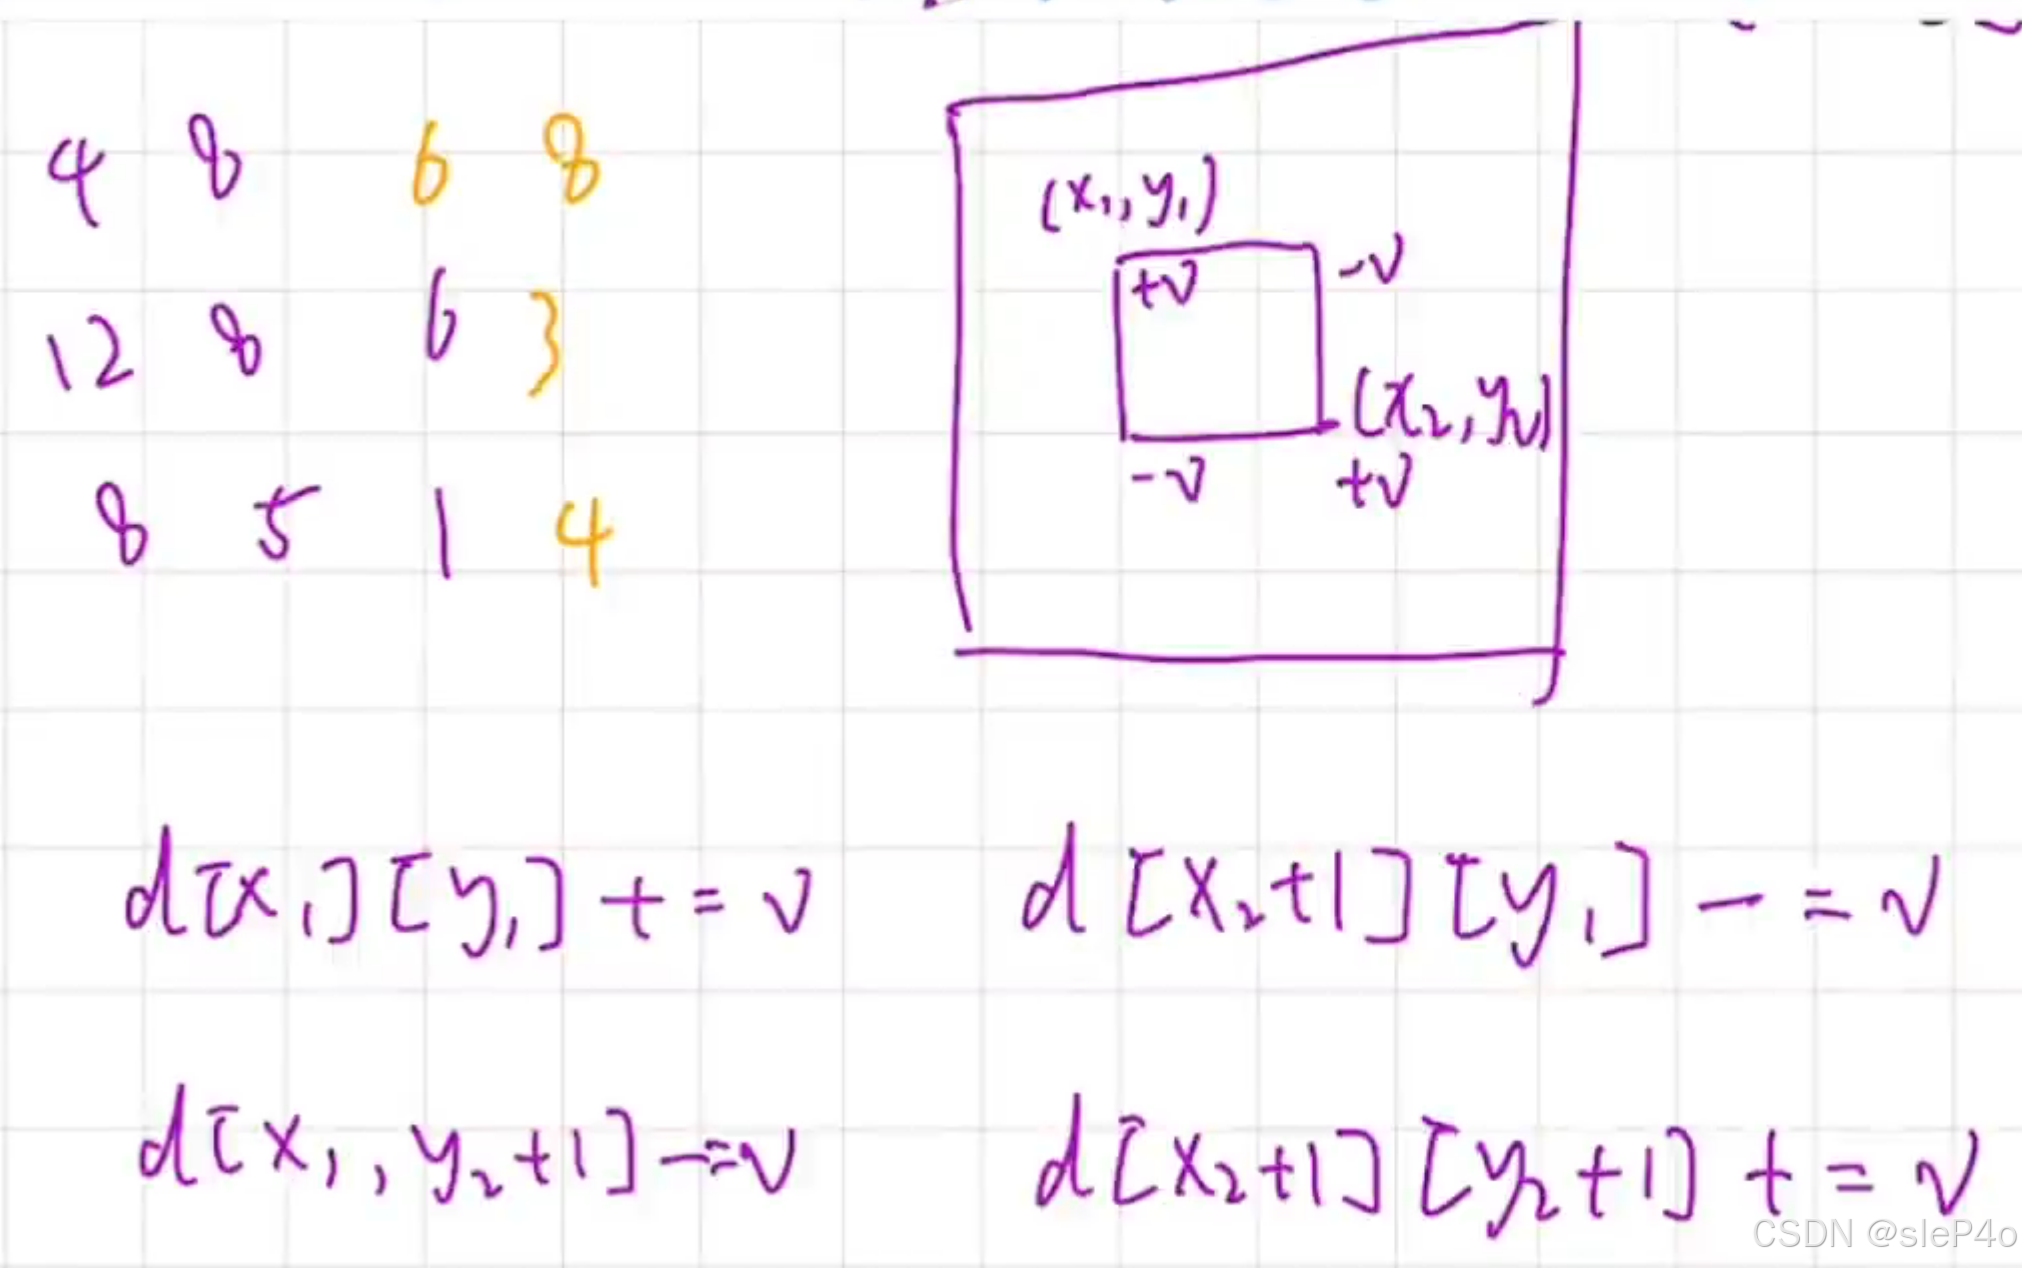 4 8 6 8
12 8 6 3
8 5 1 4
(x₁, y₁)
+v -v
(x₂, y₂)
-v +v
d[x₁][y₁] += v
d[x₂+1][y₁] -= v
d[x₁, y₂+1] -= v
d[x₂+1][y₂+1] += v
CSDN @sleP4o